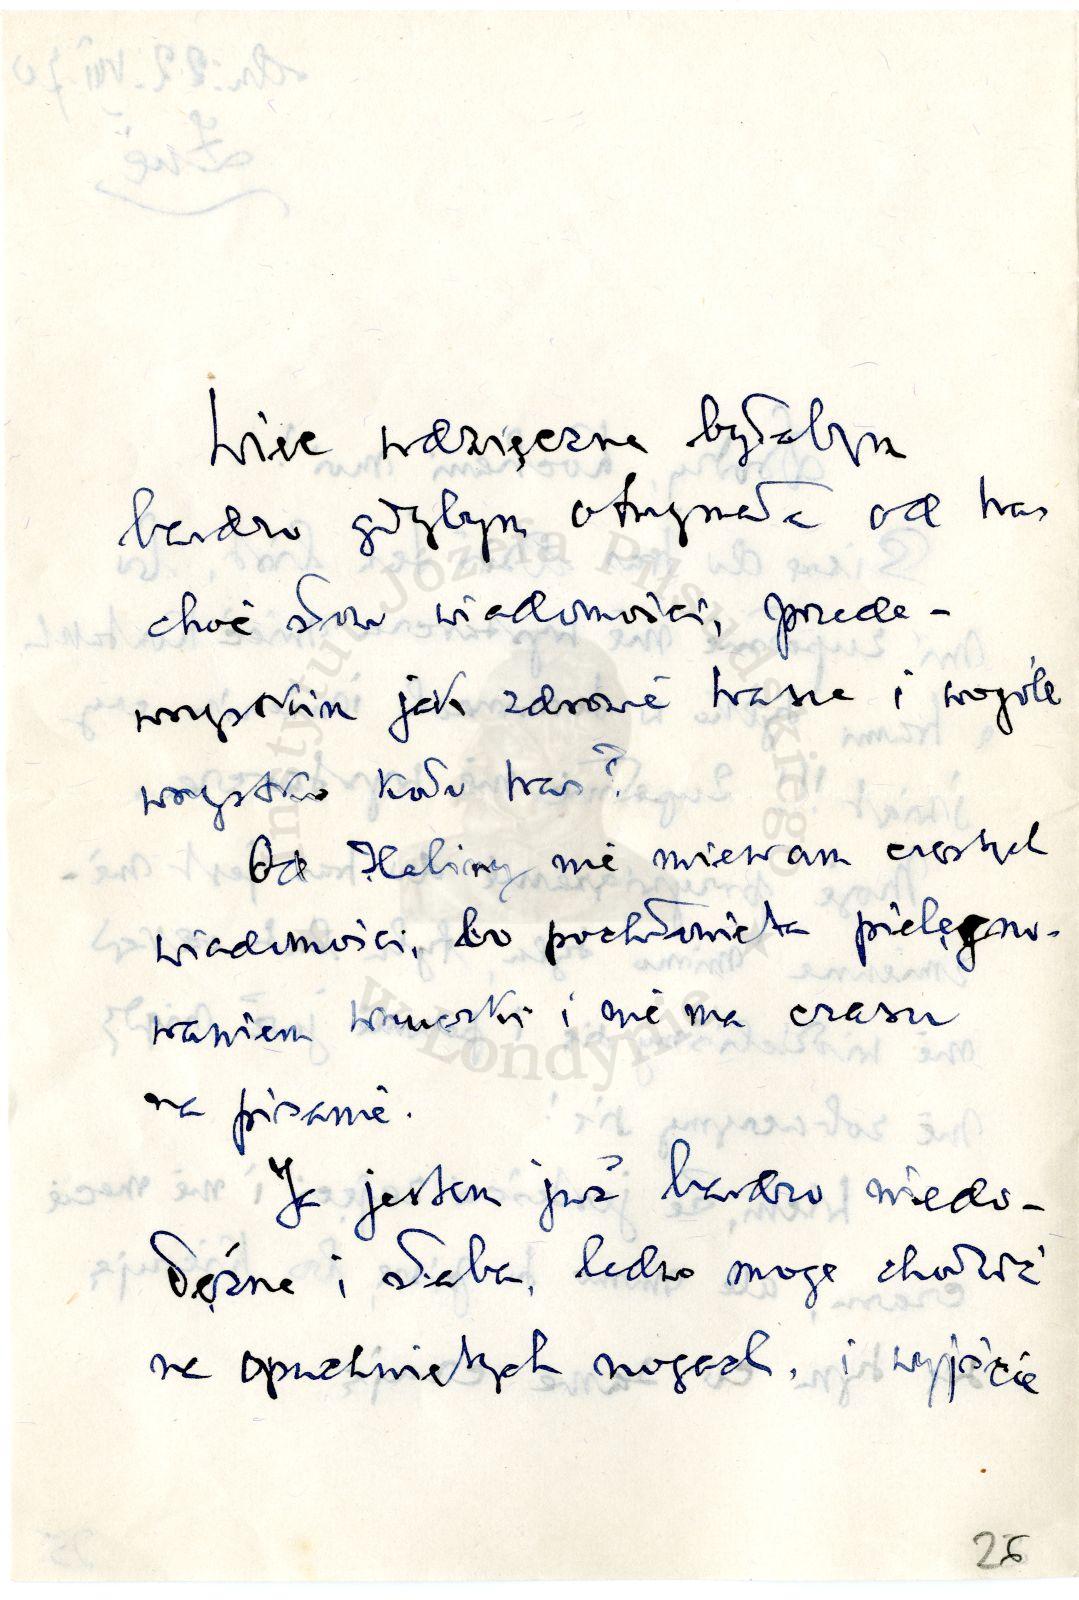 Więc wdzięczna byłabym
bardzo gdybym otrzymała od Was
choć słowo wiadomości, przede-
wszystkim jak zdrowie Wasze i wogóle
wszystko koło Was?
Od Haliny nie miewam częstych
wiadomości, bo pochłonięta pielęgno-
waniem wnuczki i nie ma czasu
na pisanie.
Ja jestem już bardzo niedo-
łężna i słaba, ledwo mogę chodzić
na opuchniętych nogach, i wyjście
26
Instytut Józefa Piłsudskiego
w Londynie